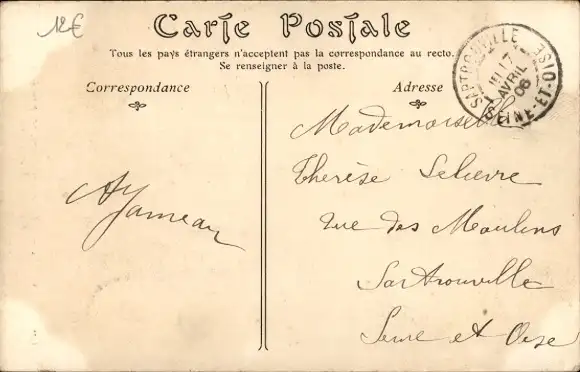 12€
Carte Postale
Tous les pays étrangers n'acceptent pas la correspondance au recto.
Se renseigner à la poste.
Correspondance
Adresse
SARTROUVILLE
17
AVRIL
06
SEINE-ET-OISE
Mademoiselle
Thérèse Lelievre
rue des Moulins
Sartrouville
Seine et Oise